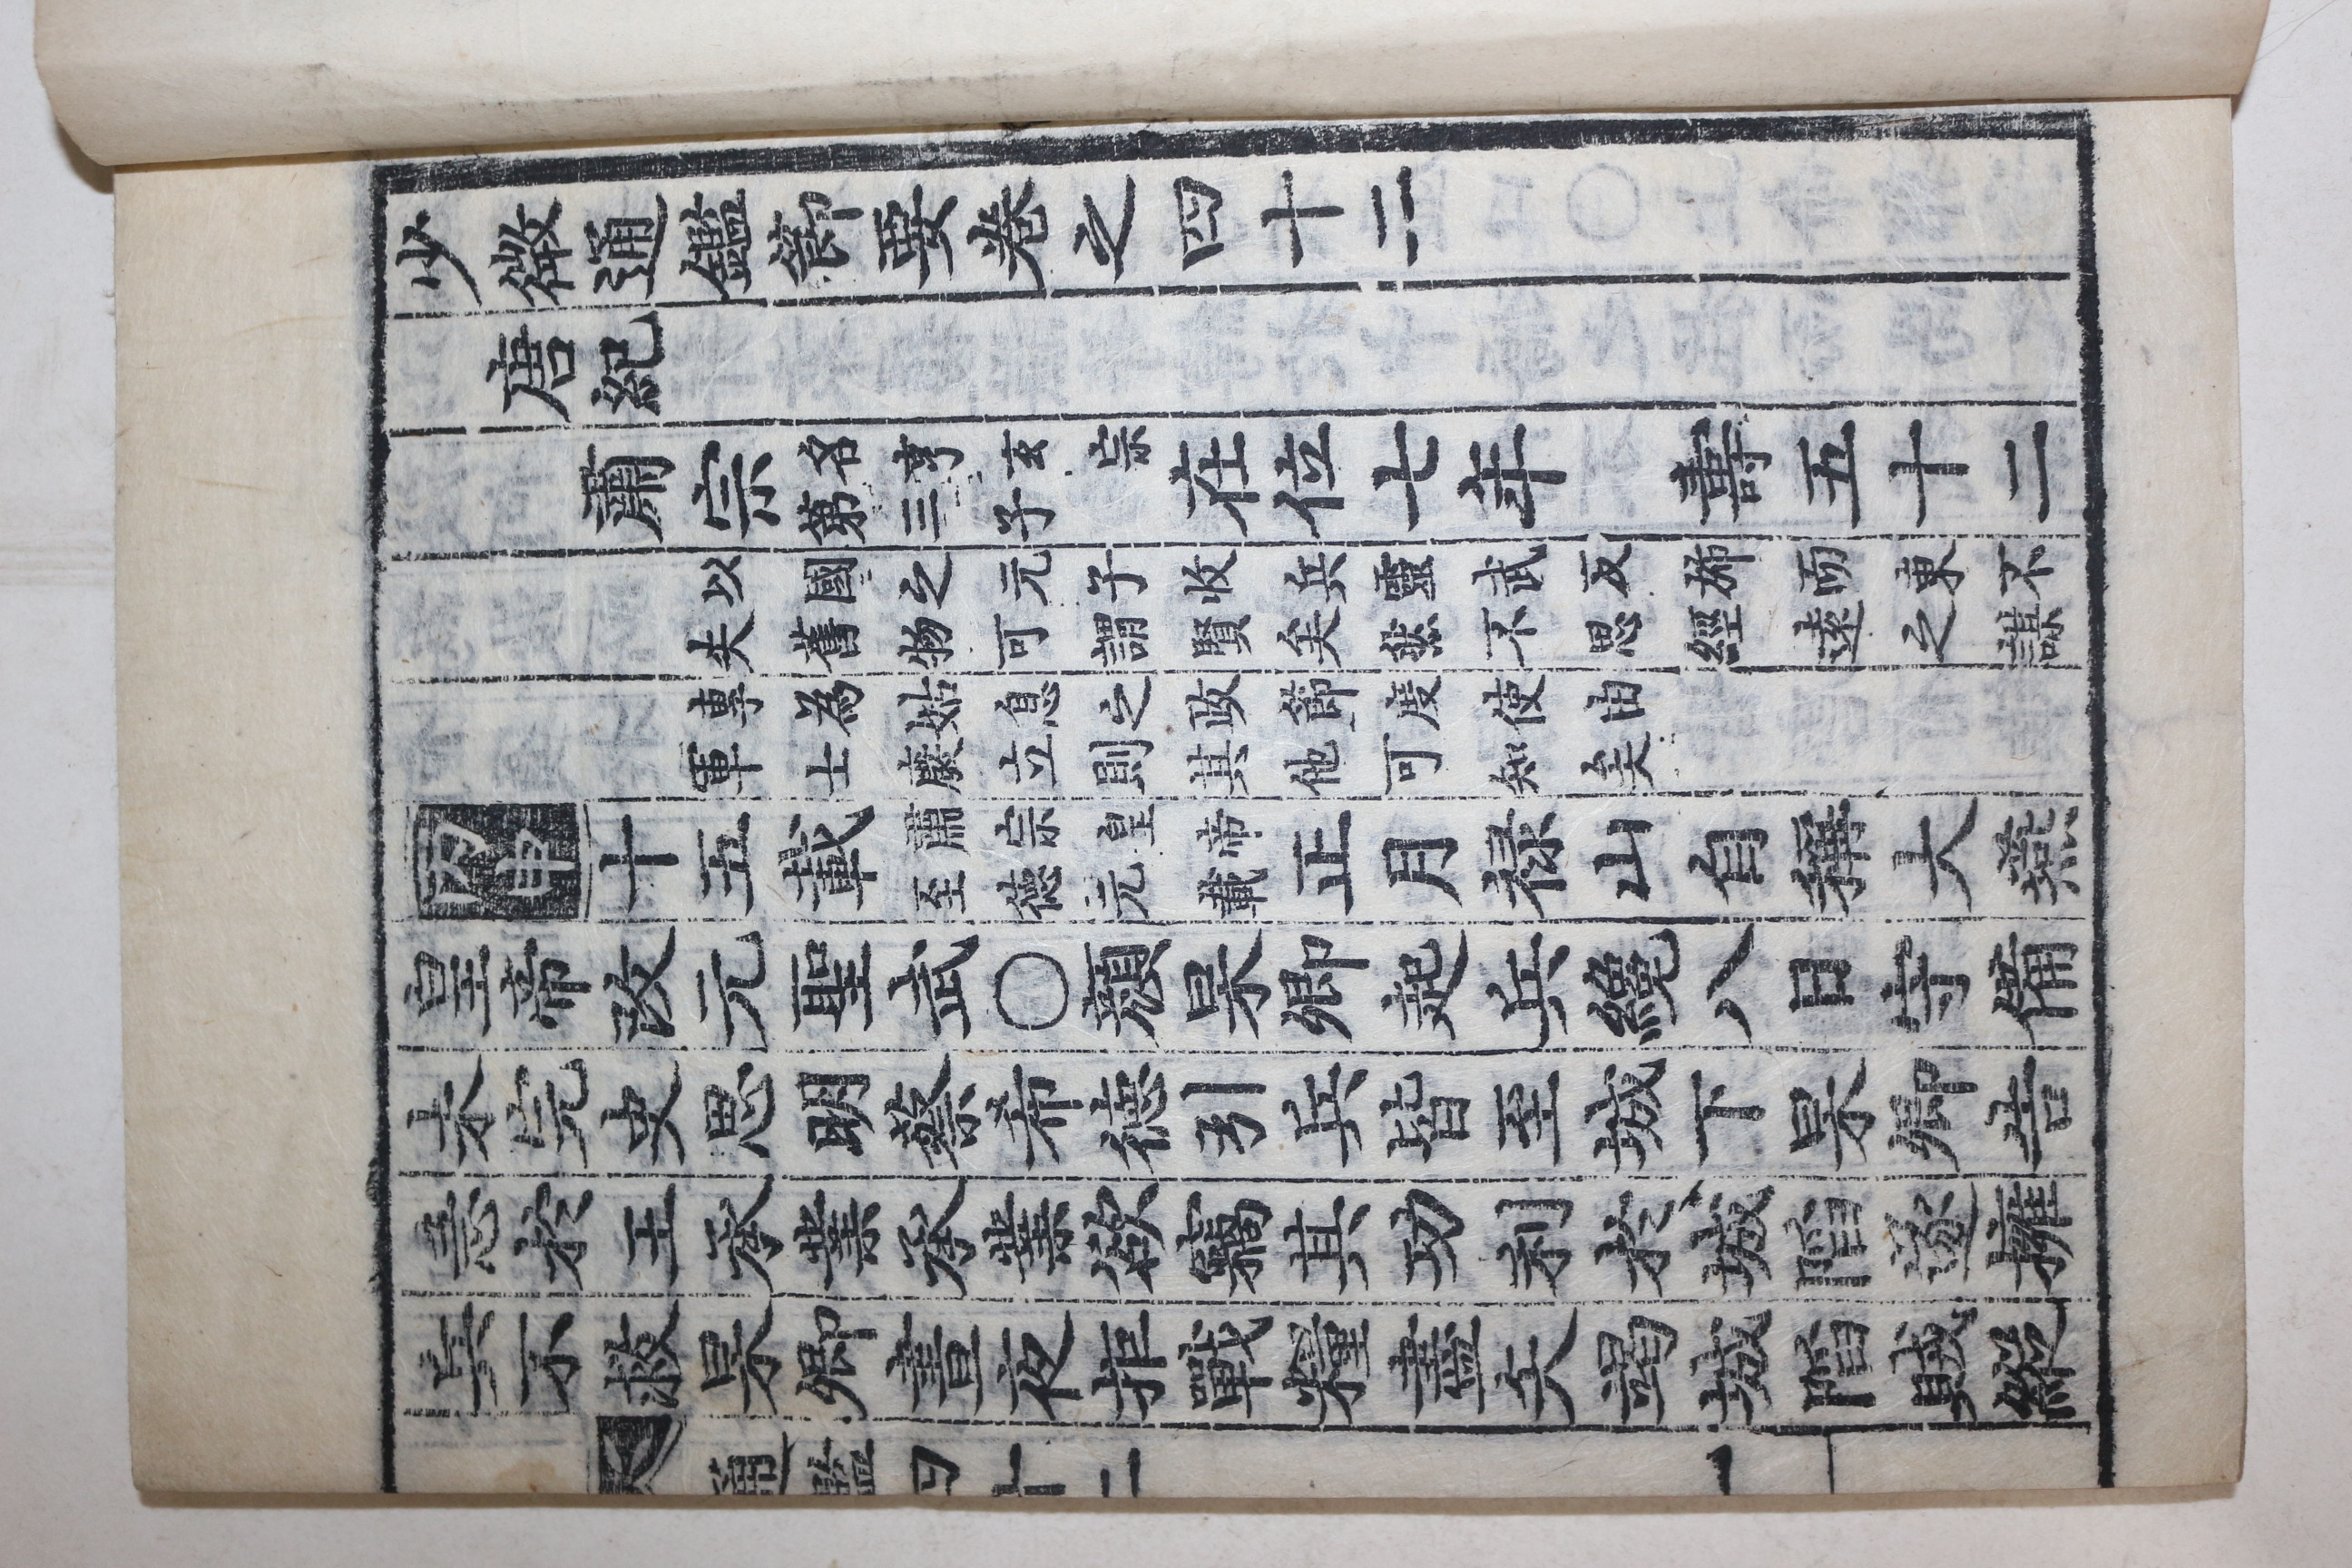 少微通鑑節要卷之四十二
唐紀
肅宗名亨玄宗第三子在位七年 壽五十二
以國之元子收兵靈武反旆而東不
失舊物可謂賢矣然不思經遠之謀
專爲姑息之政節度使由
軍士廢立則其他可知矣
丙申十五載肅宗皇帝至德元載正月祿山自稱大燕
皇帝改元聖武○顔杲卿起兵纔八日守備
未完史思明蔡希德引兵皆至城下杲卿告
急於王承業承業欲竊其功利於城陷遂擁
兵不救杲卿晝夜拒戰糧盡矢竭城陷賊縱
通鑑四十二 一